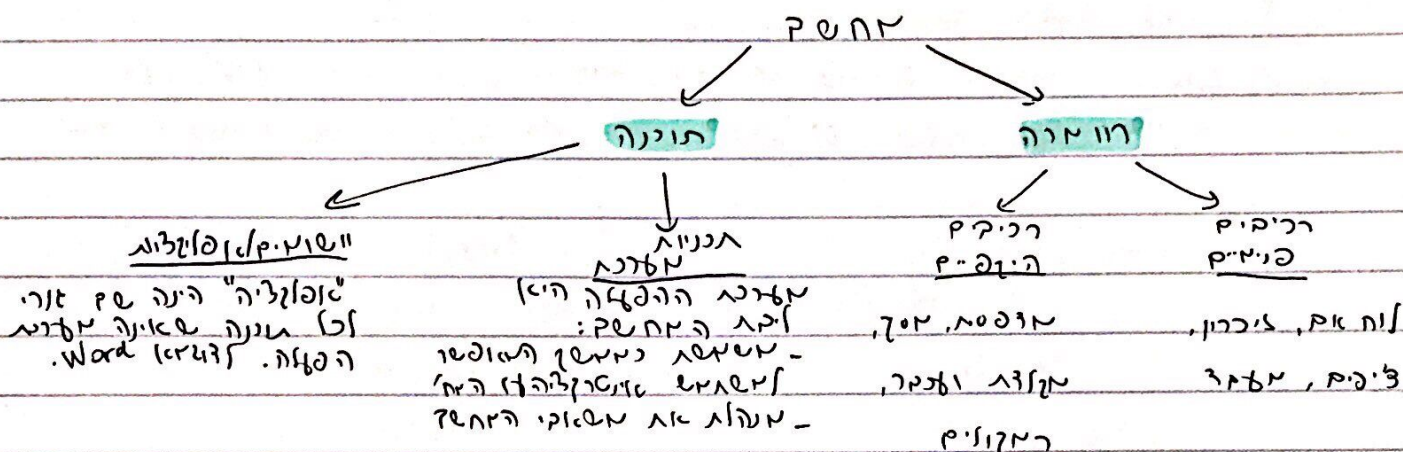 מחשב
חומרה
תוכנה
רכיבים
פנימיים
לוח אם, זיכרון,
צ'יפים, מעבד
רכיבים
היקפיים
מדפסת, מסך,
מקלדת ועכבר,
רמקולים
תכניות
מערכת
מערכת ההפעלה היא
ליבת המחשב:
- משמשת כממשק המאפשר
למשתמש אינטרקציה עם המח'
- מנהלת את משאבי המחשב
יישומים/אפליקציות
"אפליקציה" הינה שם גנרי
לכל תוכנה שאינה מערכת
הפעלה. לדוגמא Word.